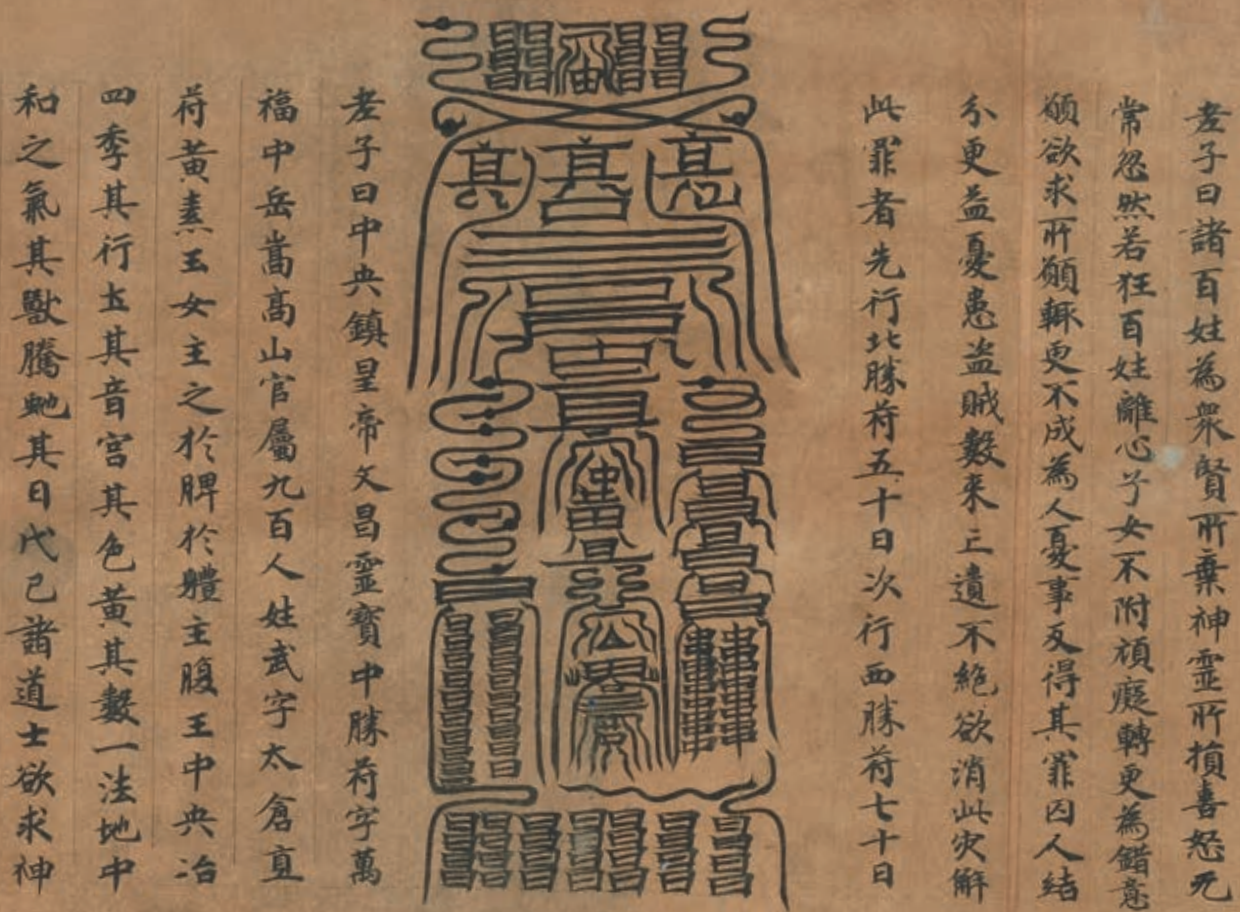 老子曰諸百姓為衆賢所棄神靈所損喜怒无
常忽然若狂百姓離心子女不附頑癡轉更為錯意
願欲求所願輒更不成為人憂事反得其罪囚人結
亦更益憂患盗賊數來亡遺不絶欲消此灾解
此罪者先行北勝苻五十日次行西勝苻七十日
老子曰中央鎮星帝文昌靈寳中勝苻字萬
福中岳嵩高山官屬九百人姓武字太倉直
苻黃素玉女主之於脾於軆主腹王中央治
四季其行土其音宫其色黃其數一法地中
和之氣其獸騰虵其日戊己諸道士欲求神